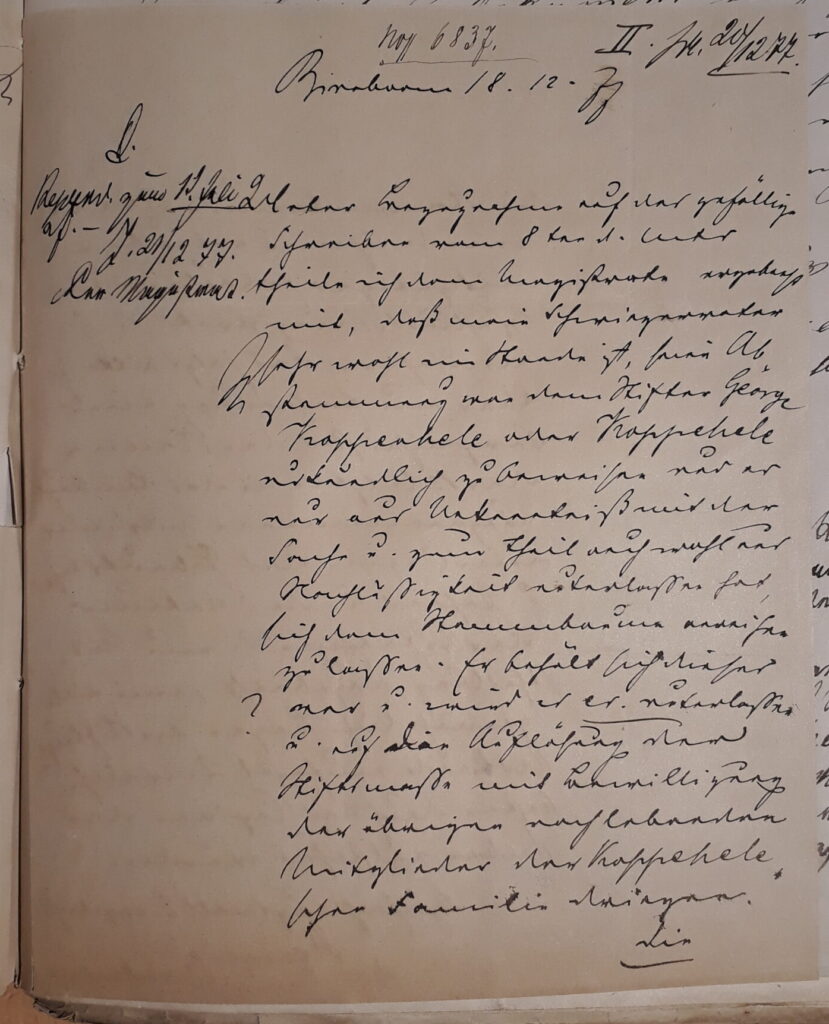 No 6837.
II. pr. 20/12 77.
Birnbaum 18. 12. 77
Reprod. zum 1t. Juli
Z. 21/12 77.
Der Magistrat.
Unter Bezugnahme auf das gefällige
Schreiben vom 8ten d. Mts
theile ich dem Magistrate ergebenst
mit, daß mein Schwiegervater
sehr wohl im Stande ist, seine Ab
stammung von dem Stifter George
Koppenhele oder Koppehele
urkundlich zu beweisen und er
nur aus Unkenntniß mit der
Sache u. zum Theil auch wohl aus
Nachlässigkeit unterlassen hat,
sich dem Stammbaume anreihen
zu lassen. Er behält sich dieses
vor u. wird er er. unterlassen
u. auf die Auflösung der
Stiftsmasse mit Bewilligung
der übrigen nachlebenden
Mitglieder der Koppehele
schen Familie dringen.
Die